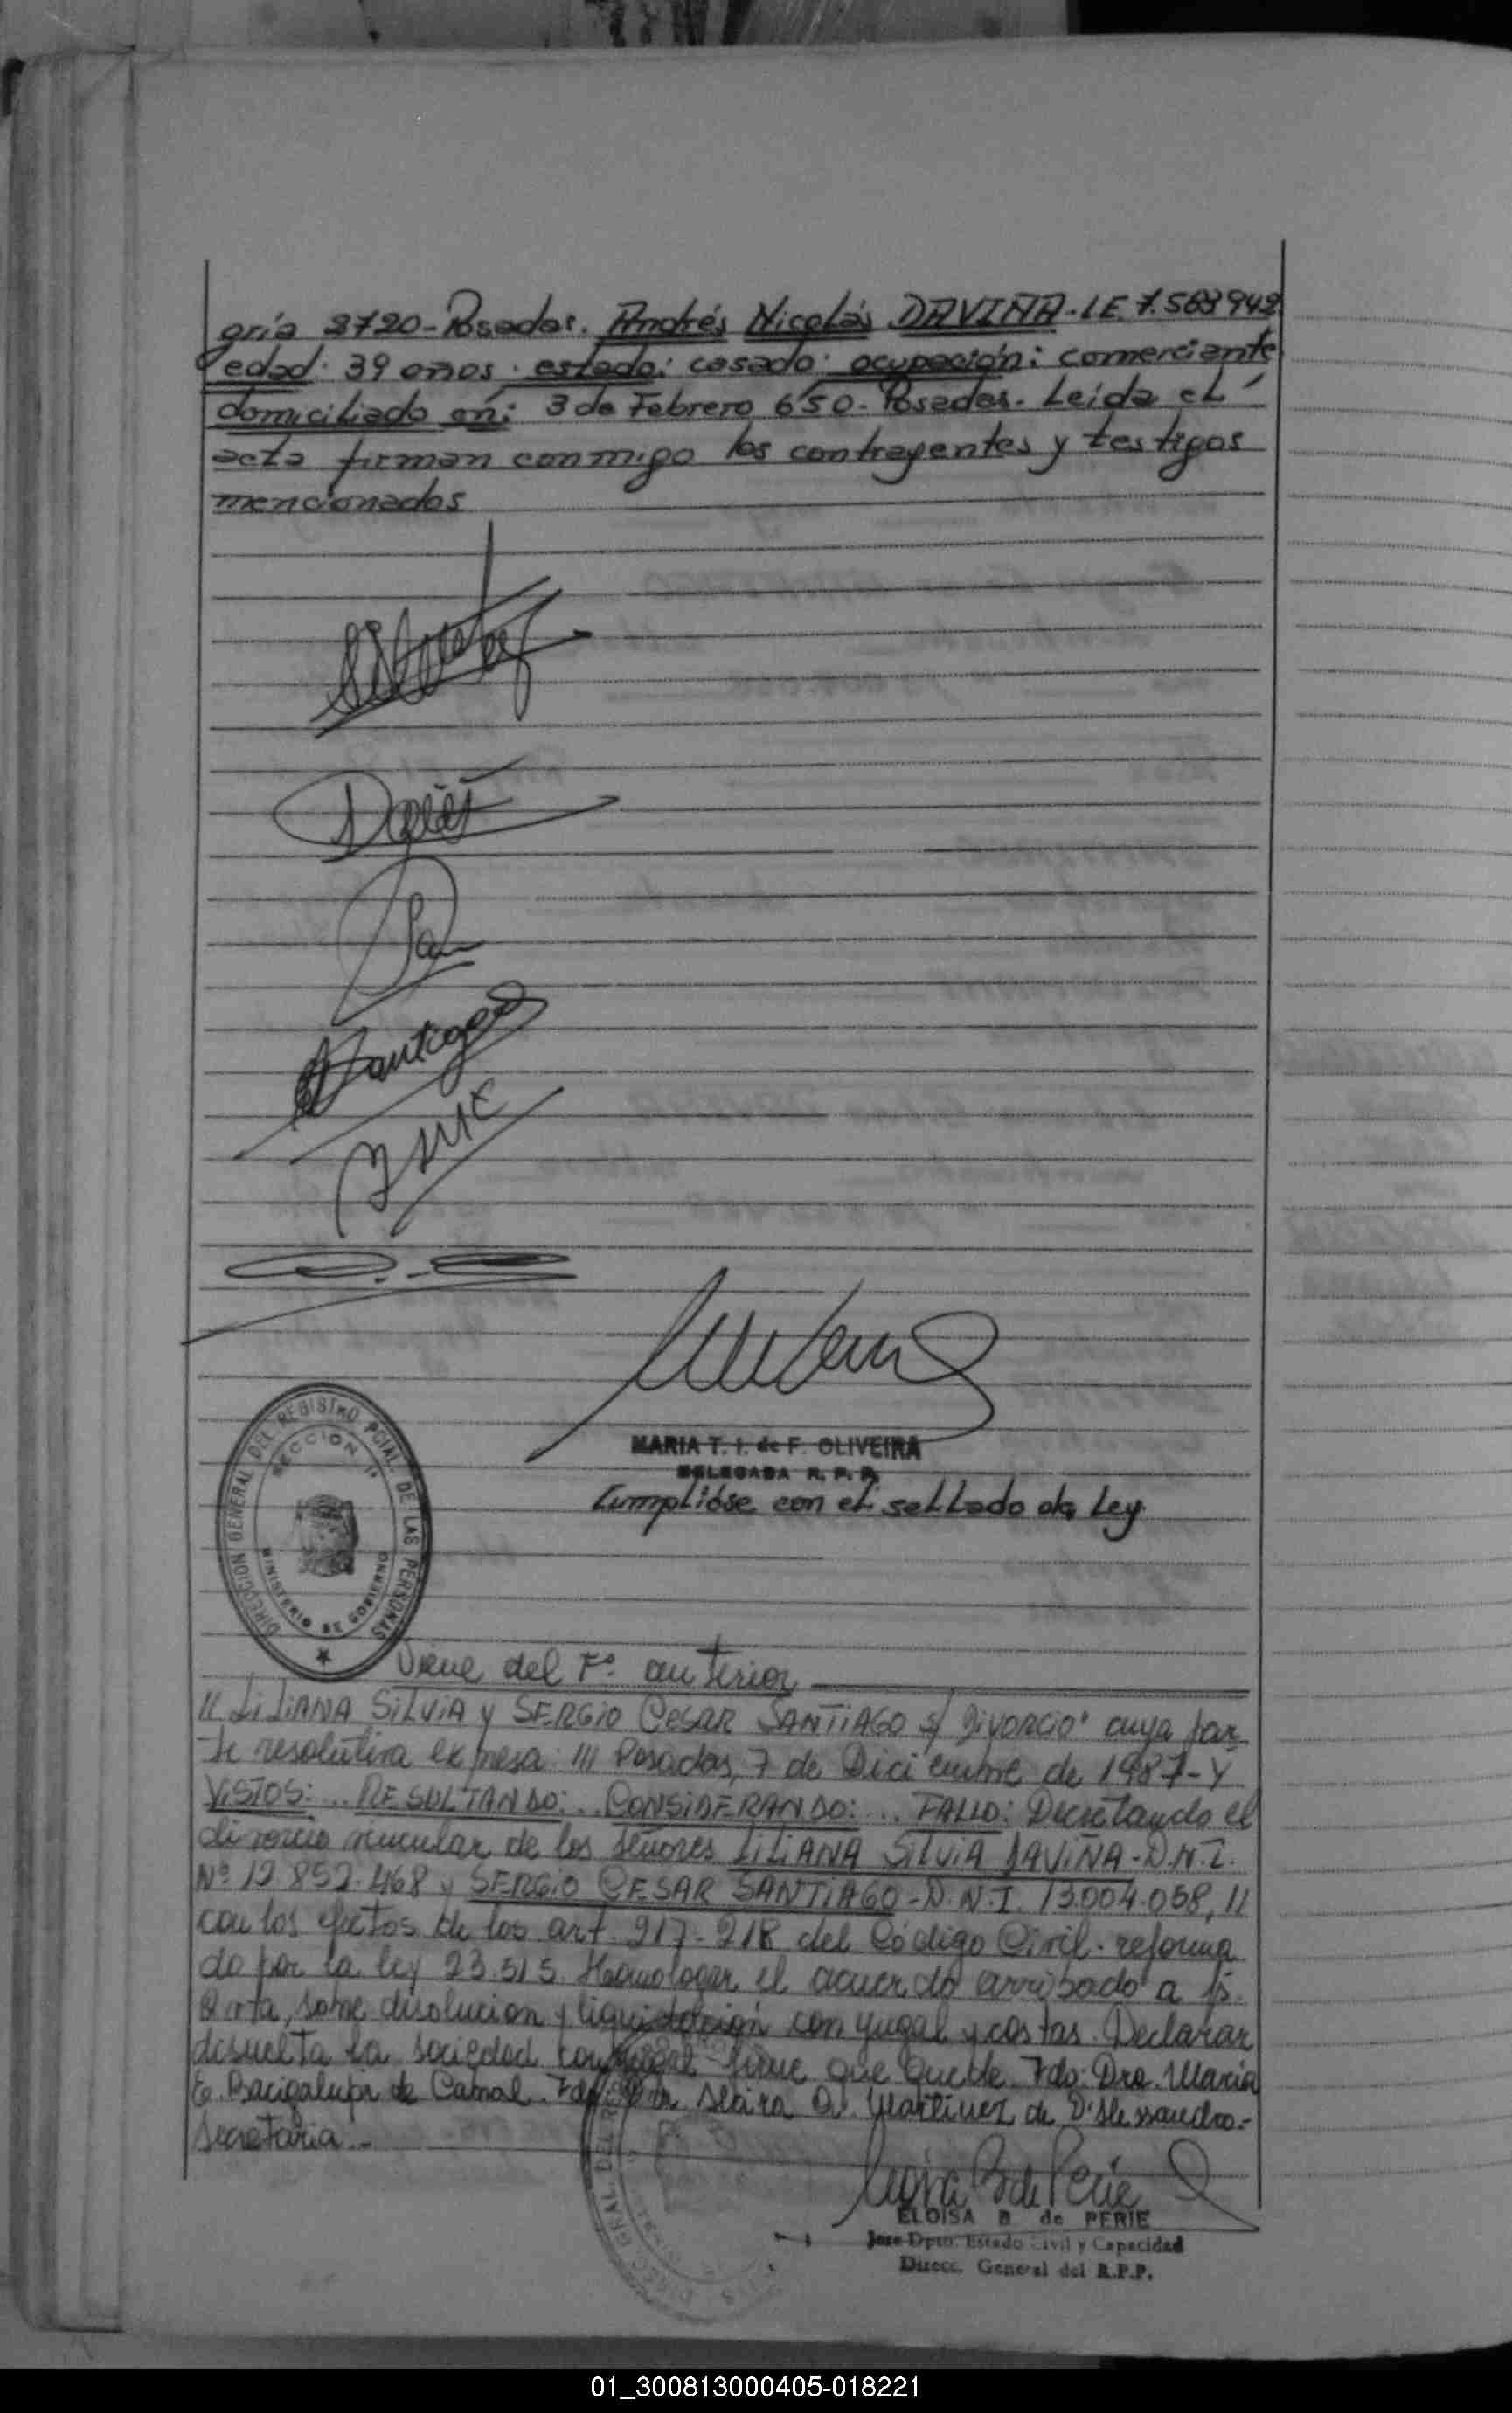 gría 3720-Posadas. Andrés Nicolás DAVIÑA-LE. 7.563942
edad: 39 años. estado: casado: ocupación: comerciante
domiciliado en: 3 de Febrero 650- Posadas. Leída el
acta firman conmigo los contrayentes y testigos
mencionados
Santiago
DIRECCION GENERAL DEL REGISTRO PCIAL. DE LAS PERSONAS
SECCION 1ª
MINISTERIO DE GOBIERNO
MARIA T. I. de F. OLIVEIRA
DELEGADA R. P. P.
Cumplióse con el sellado de Ley.
Viene del Fº anterior
" LILIANA SILVIA y SERGIO CESAR SANTIAGO s/ Divorcio" cuya par
te resolutiva expresa: /// Posadas, 7 de Diciembre de 1987- Y
VISTOS:... RESULTANDO:... CONSIDERANDO:... FALLO: Decretando el
divorcio vincular de los señores LILIANA SILVIA DAVIÑA-D.N.I.
Nº 12.852.468 y SERGIO CESAR SANTIAGO-D.N.I. 13.004.058, //
con los efectos de los art. 217-218 del Código Civil- reforma
do por la ley 23.515. Homologar el acuerdo arribado a fs.
sobre disolucion y liquidación conyugal y costas. Declarar
disuelta la sociedad conyugal firme que quede. Fdo: Dra. Maria
E. Bacigalupi de Cabral. Fdo: Dra. Martinez de D'Alessandro.-
Secretaria.-
ELOISA B de PERIE
Jefe Dpto. Estado Civil y Capacidad
Direcc. General del R.P.P.
01_300813000405-018221